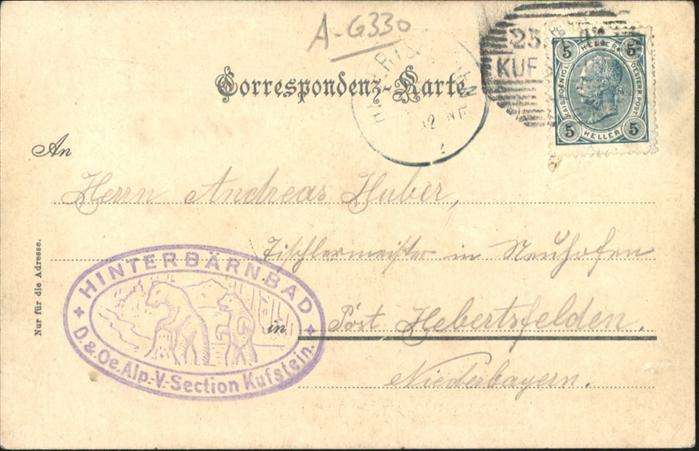 A-G330
Correspondenz-Karte
25.
KUF
5 5
HELLER
5 5
An
Herrn Andreas Huber,
Tischlermeister in Neuhofen
in Post Hebertsfelden.
Niederbayern.
Nur für die Adresse.
HINTERBÄRNBAD
D. & Oe. Alp.-V. Section Kufstein.